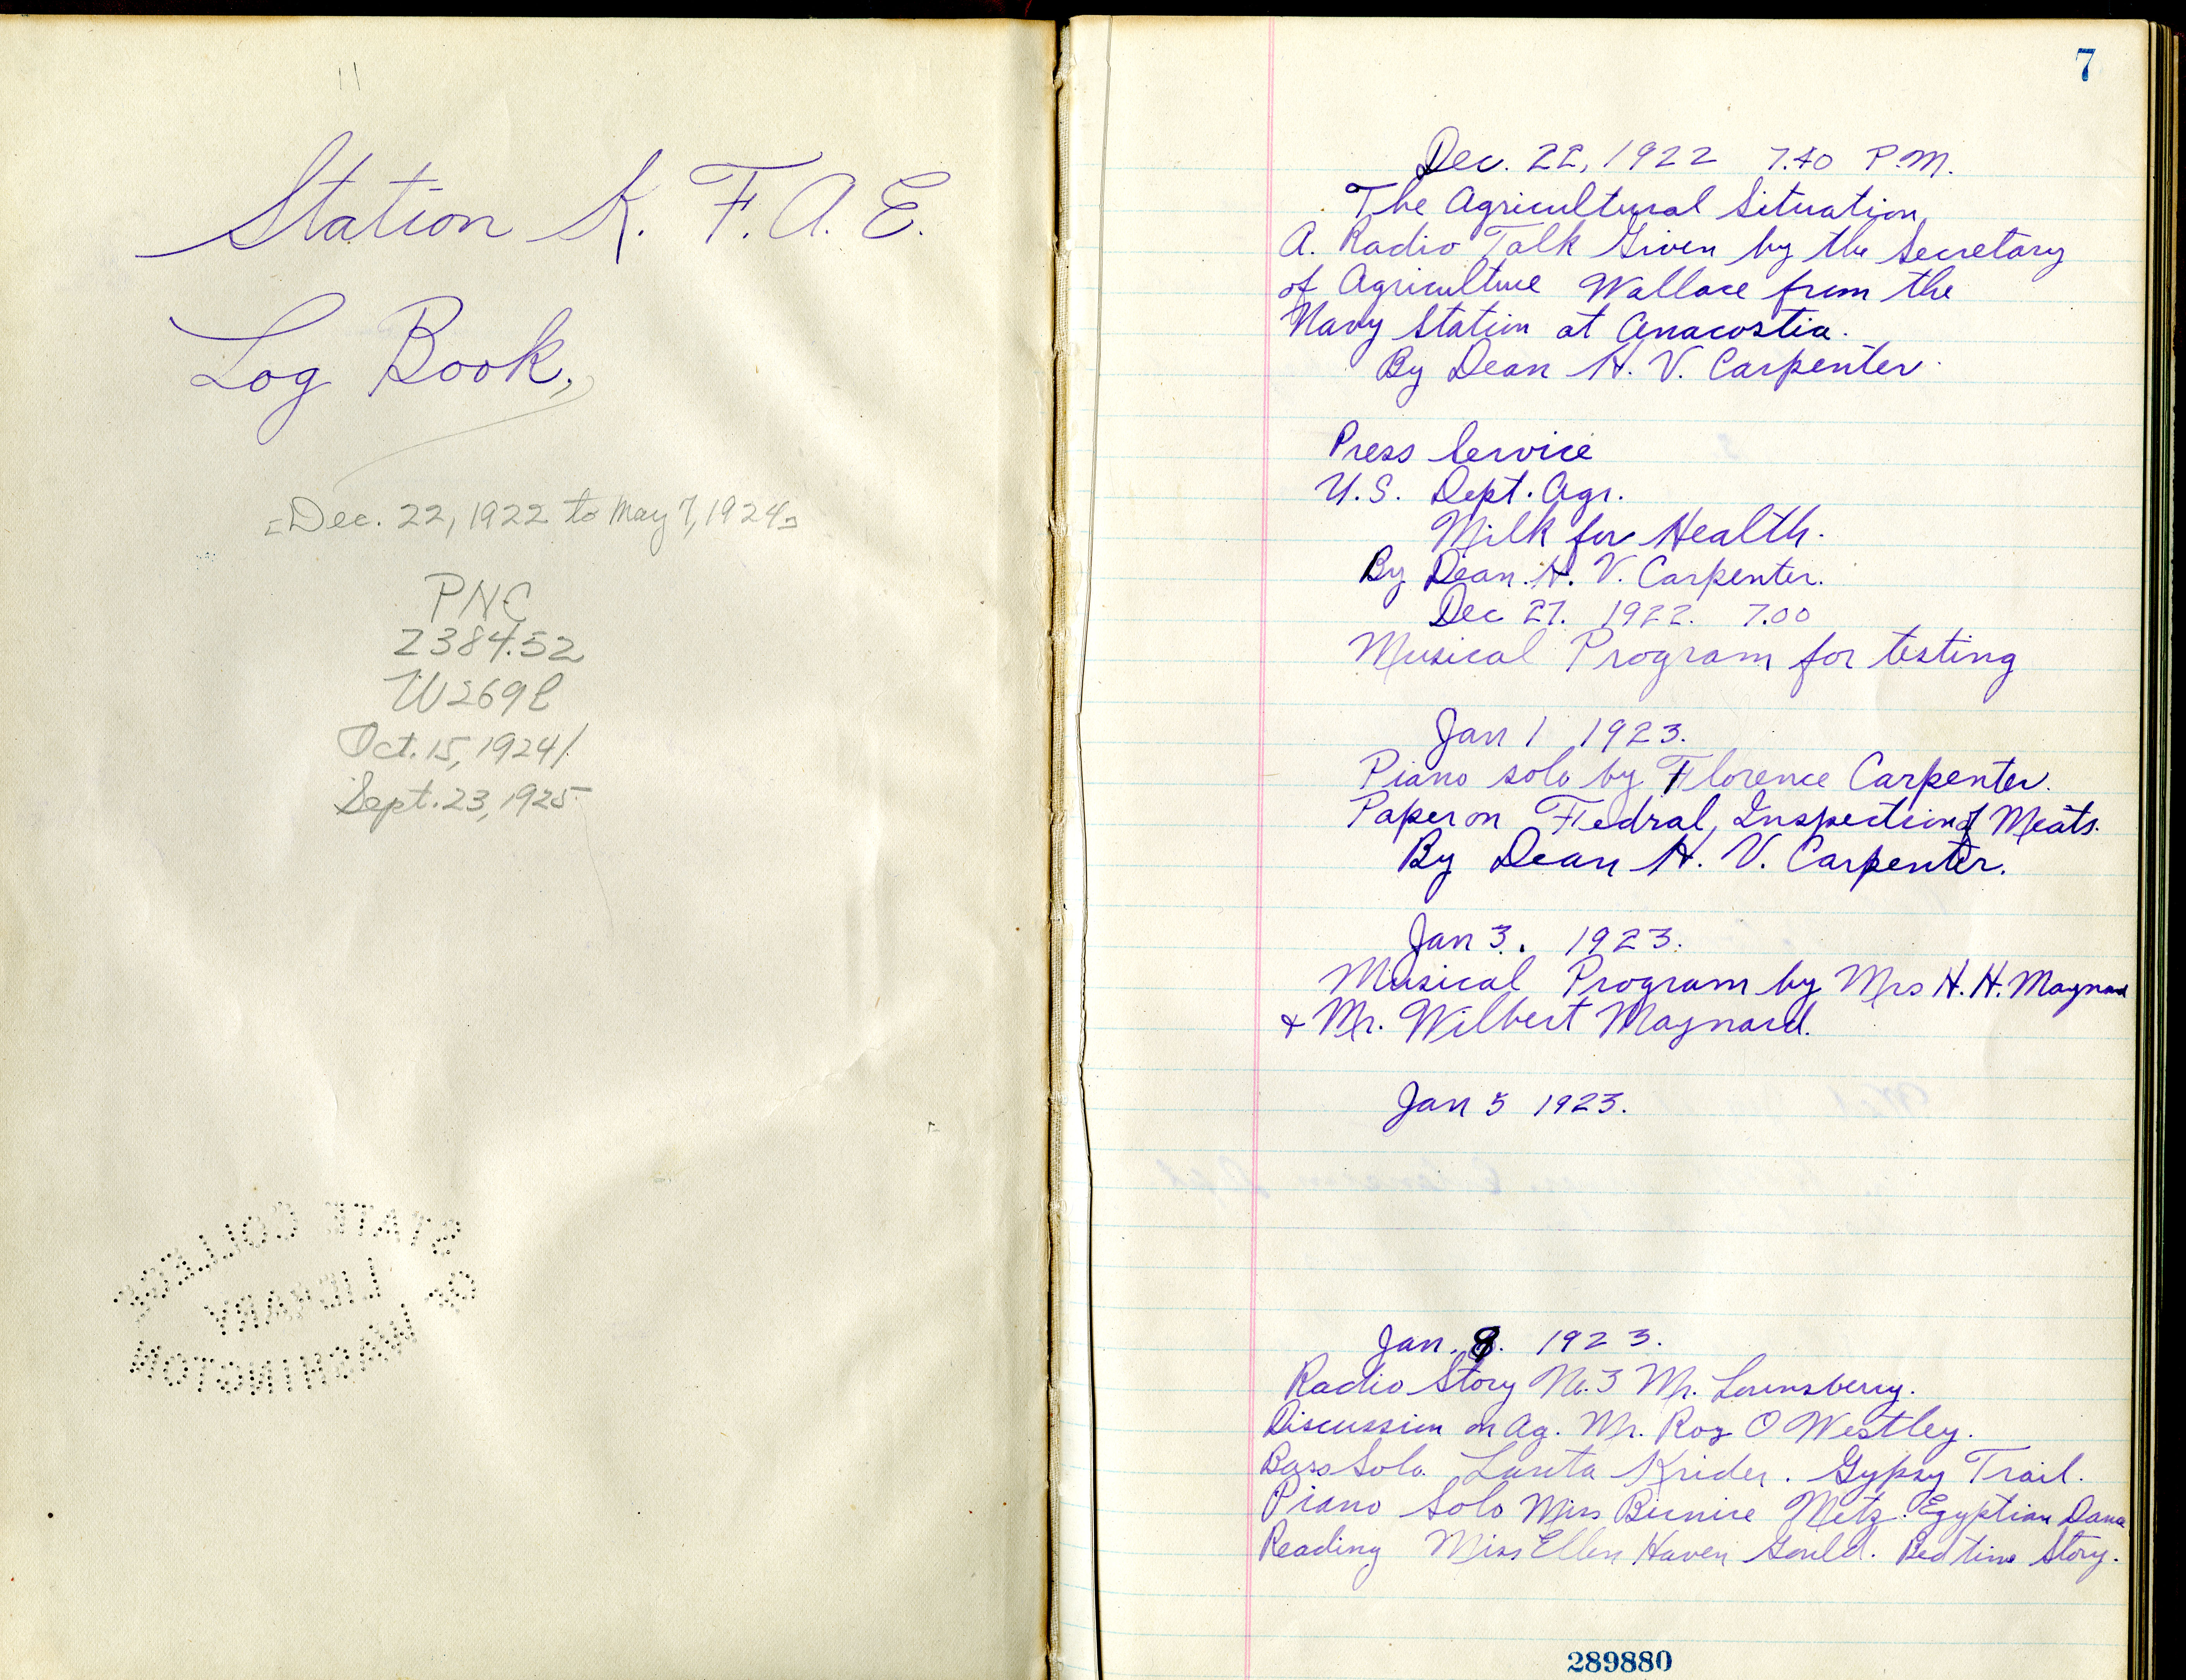 Station K. F. A. E.
Log Book,
[Dec. 22, 1922 to May 7, 1924]
PNC
2384.52
W269l
Oct. 15, 1924/
Sept. 23, 1925
STATE COLLEGE
OF
LIBRARY
WASHINGTON
7
Dec. 22, 1922 7.40 P.M.
The Agricultural Situation,
A. Radio Talk Given by the Secretary
of Agriculture Wallace from the
Navy Station at Anacostia.
By Dean H. V. Carpenter.
Press Service
U.S. Dept. Agr.
Milk for Health.
By Dean. H. V. Carpenter.
Dec 27. 1922. 7.00
Musical Program for testing
Jan 1 1923.
Piano solo by Florence Carpenter.
Paper on Fedral, Inspection of Meats.
By Dean H. V. Carpenter.
Jan 3. 1923.
Musical Program by Mrs H. H. Maynard
& Mr. Wilbert Maynard.
Jan 5 1923.
Jan. 8. 1923.
Radio Story No. 3 Mr. Lounsberry.
Discussion on Ag. Mr. Roy O Westley.
Bass Solo. Krider. Gypsy Trail.
Piano Solo Miss Bernice Metz. Egyptian Dance
Reading Miss Ellen Haven Gould. Bed time Story.
289880